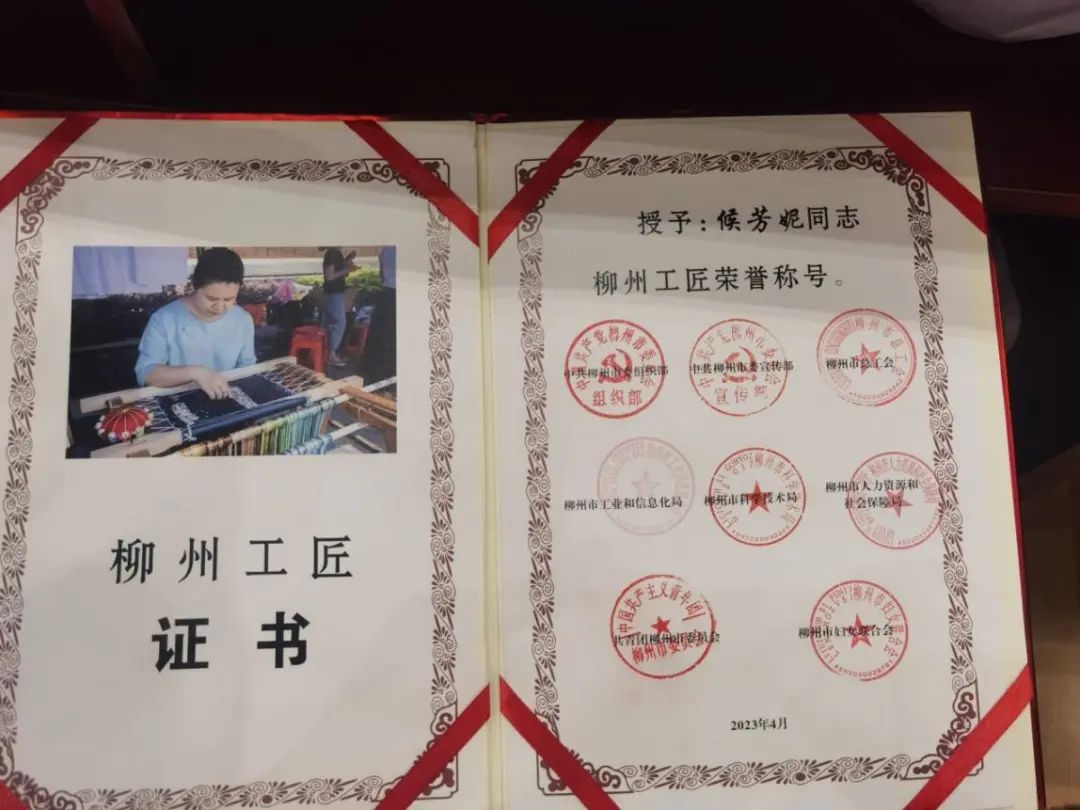 柳州工匠
证书
授予：候芳妮同志
柳州工匠荣誉称号。
中共柳州市委组织部
组织部
中共柳州市委宣传部
宣传部
柳州市总工会
柳州市工业和信息化局
柳州市科学技术局
柳州市人力资源和
社会保障局
共青团柳州市委员会
柳州市妇女联合会
2023年4月